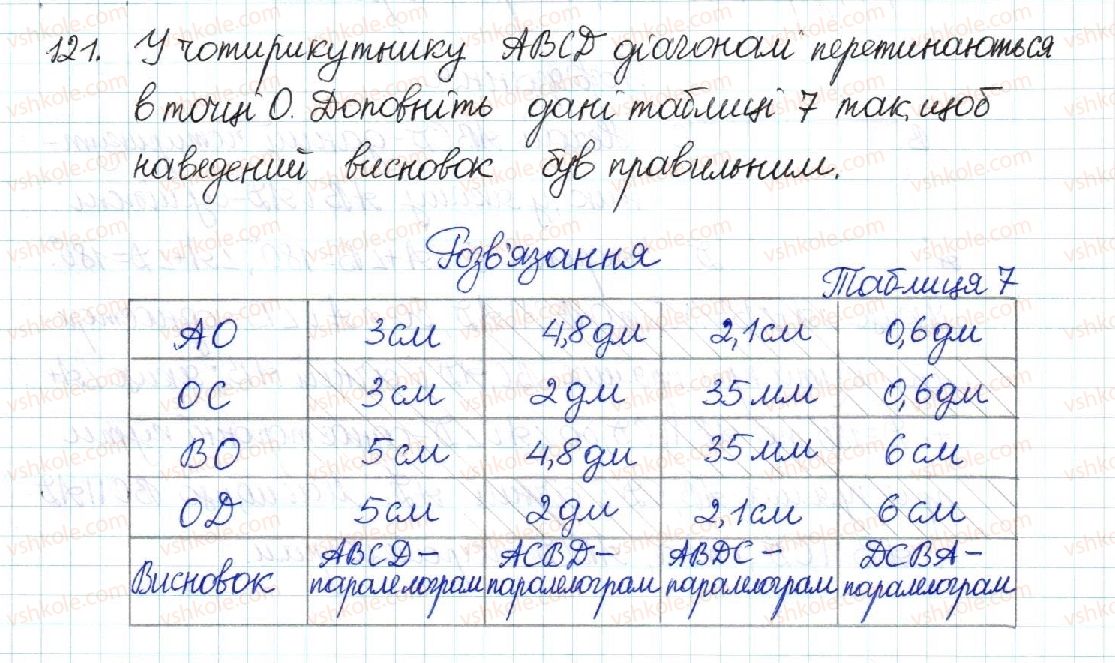 121. У чотирикутнику ABCD діагоналі перетинаються
в точці О. Доповніть дані таблиці 7 так, щоб
наведений висновок був правильним.
Розв'язання
Таблиця 7
АО 3 см 4,8 дм 2,1 см 0,6 дм
ОС 3 см 2 дм 35 мм 0,6 дм
ВО 5 см 4,8 дм 35 мм 6 см
ОД 5 см 2 дм 2,1 см 6 см
Висновок ABCD – паралелограм ACBD – паралелограм ABDC – паралелограм DCBA – паралелограм
vshkole.com